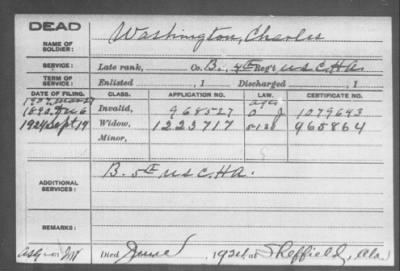 DEAD
NAME OF SOLDIER: Washington, Charles
SERVICE: Late rank, Co. B., 4th Reg't U.S.C.H.A.
TERM OF SERVICE: Enlisted , 1 Discharged , 1
DATE OF FILING. CLASS. APPLICATION NO. LAW. CERTIFICATE NO.
Invalid, 968527 1079643
1924 Sept 19 Widow, 1223717 965864
Minor,
ADDITIONAL SERVICES: B. 5th U.S.C.H.A.
REMARKS:
Died June 1924, at Sheffield, Ala.